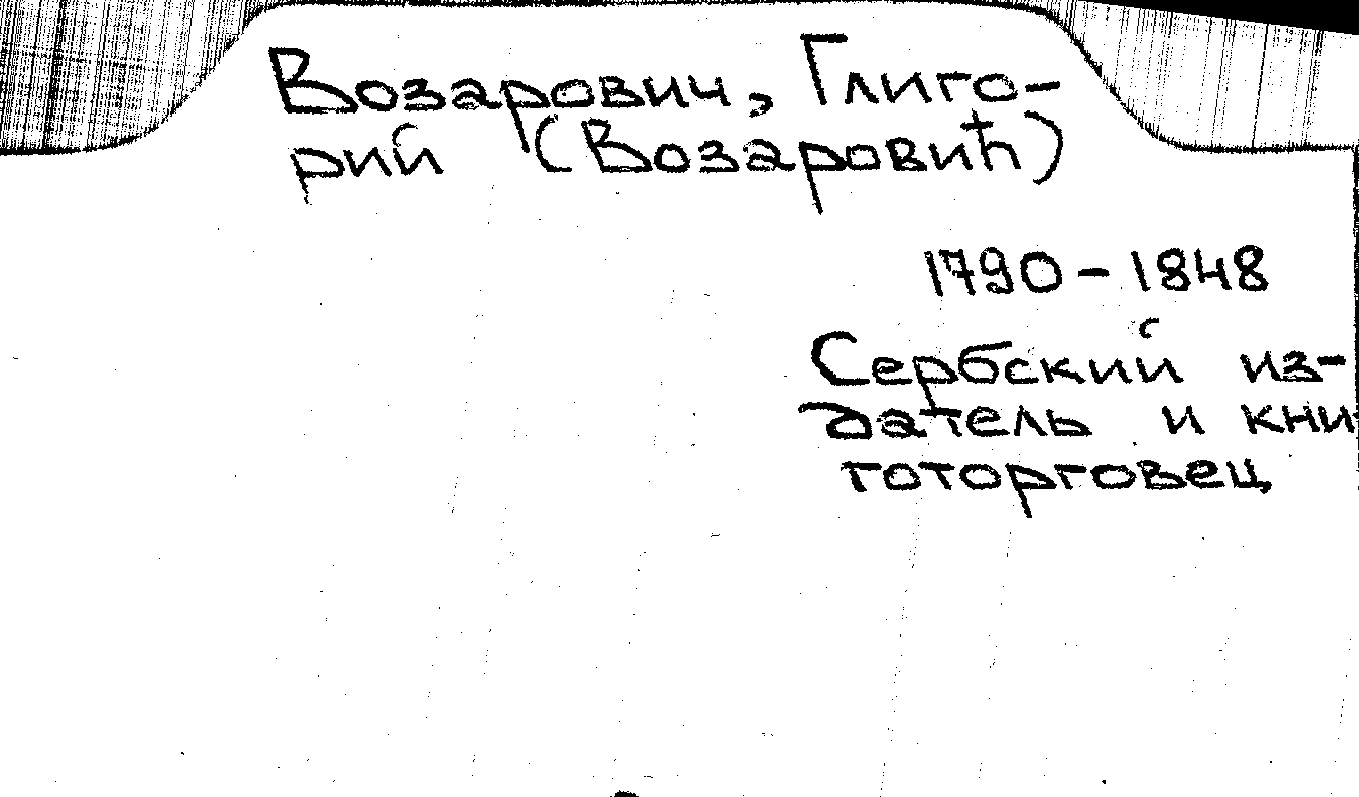 Возарович, Глиго-
рий (Возаровић)
1790-1848
Сербский из-
датель и кни-
готорговец